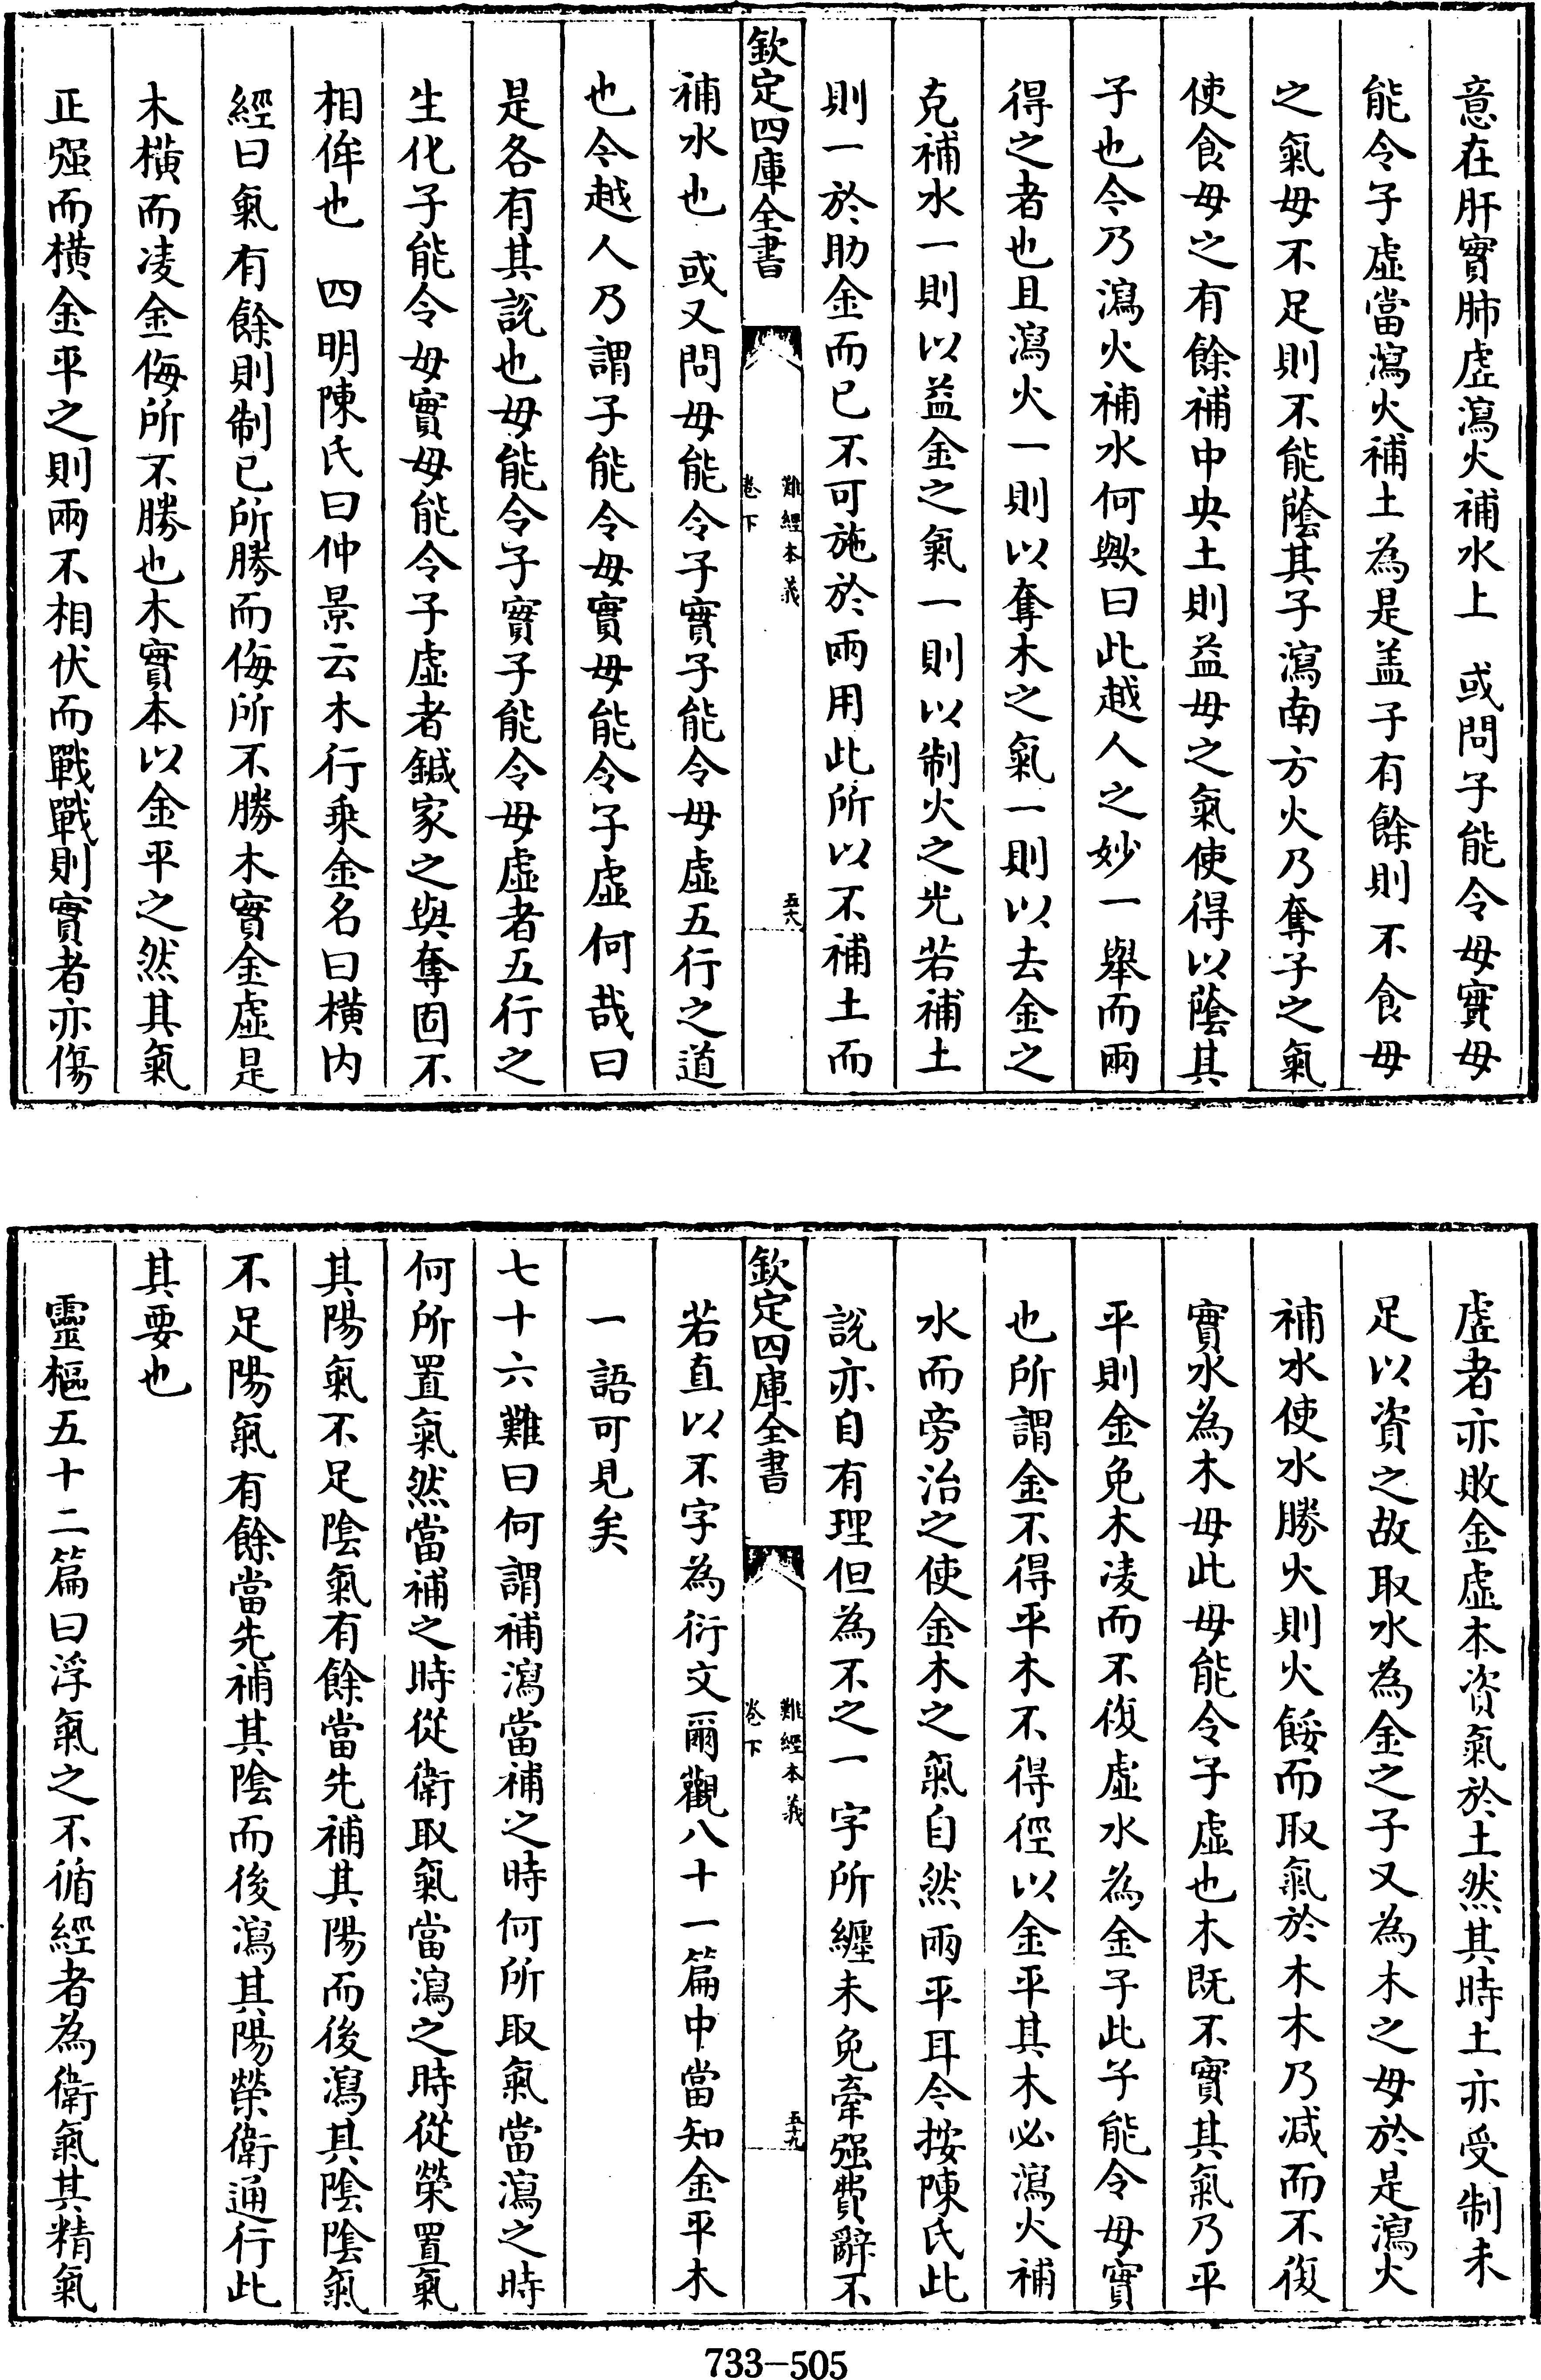 意在肝實肺虛瀉火補水上　或問子能令母實母
能令子虛當瀉火補土為是盖子有餘則不食母
之氣母不足則不能蔭其子瀉南方火乃奪子之氣
使食母之有餘補中央土則益母之氣使得以蔭其
子也今乃瀉火補水何歟曰此越人之妙一舉而兩
得之者也且瀉火一則以奪木之氣一則以去金之
克補水一則以益金之氣一則以制火之光若補土
則一於助金而已不可施於兩用此所以不補土而
欽定四庫全書
難經本義
卷下
五十八
補水也　或又問母能令子實子能令母虛五行之道
也今越人乃謂子能令母實母能令子虛何哉曰
是各有其說也母能令子實子能令母虛者五行之
生化子能令母實母能令子虛者鍼家之與奪固不
相侔也　四明陳氏曰仲景云木行乘金名曰橫内
經曰氣有餘則制已所勝而侮所不勝木實金虛是
木橫而凌金侮所不勝也木實本以金平之然其氣
正强而橫金平之則兩不相伏而戰戰則實者亦傷
虛者亦敗金虛本資氣於土然其時土亦受制未
足以資之故取水為金之子又為木之母於是瀉火
補水使水勝火則火餒而取氣於木木乃减而不復
實水為木母此母能令子虛也木既不實其氣乃平
平則金免木凌而不復虛水為金子此子能令母實
也所謂金不得平木不得徑以金平其木必瀉火補
水而旁治之使金木之氣自然兩平耳今按陳氏此
說亦自有理但為不之一字所纏未免牽强費辭不
欽定四庫全書
難經本義
卷下
五十九
若直以不字為衍文爾觀八十一篇中當知金平木
一語可見矣
七十六難曰何謂補瀉當補之時何所取氣當瀉之時
何所置氣然當補之時從衛取氣當瀉之時從榮置氣
其陽氣不足陰氣有餘當先補其陽而後瀉其陰陰氣
不足陽氣有餘當先補其陰而後瀉其陽榮衛通行此
其要也
靈樞五十二篇曰浮氣之不循經者為衛氣其精氣
733-505